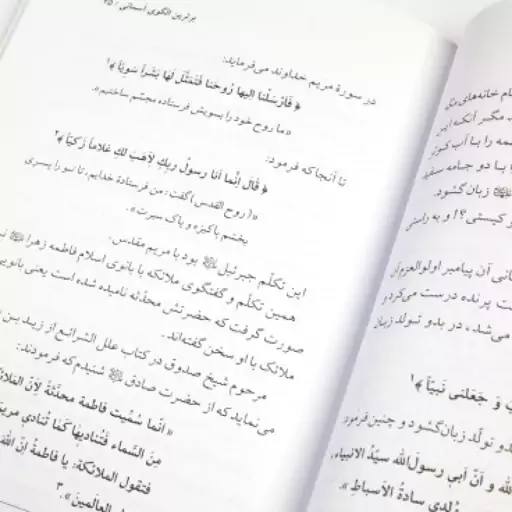 برترین الگوی انسانی / ۲۵
در سورهٔ مریم خداوند می‌فرماید:
﴿ فَأَرْسَلْنا إلیها رُوحَنا فَتَمَثَّلَ لَها بَشَراً سَوِیّاً ﴾¹
«ما روح خود را بسویش فرستاده مجسّم ساختیم»
تا آنجا که فرمود:
﴿ قالَ اِنَّما أنا رسولُ ربِکِ لِاَهَبَ لَکِ غلاماً زَکیّاً ﴾²
«(روح القدس) گفت: من فرستادهٔ خدایم، تا تو را پسری
بخشم پاکیزه و پاک سیرت».
این تکلّم جبرئیل بود با مریم مقدّس.
همین تکلّم و گفتگوی ملائکه با بانوی اسلام فاطمه زهرا
صورت گرفت که حضرتش محدّثه نامیده شده است یعنی بانویی
ملائک با او سخن گفته‌اند.
مرحوم شیخ صدوق در کتاب علل الشرائع از زید بن
می‌نماید که از حضرت صادق شنیدم که فرمودند:
«انّما سُمّیت فاطمة محدَّثةً لِاَنَّ الملائکة
مِنَ السَّماء فَتُنادیها کَما تُنادی مریم
فتقول الملائکة: یا فاطمةُ انَّ الله
العالمین».³
ام خانه‌های مکّ
مگر آنکه این
مه را با آب کوثر
با دو جامه سفید
زبان گشود.
و کیستی؟! و به راستی
آن پیامبر اولوالعزم
پرنده درست می‌کرد و
می‌شد، در بدو تولّد زبان
وَ جَعَلنی نَبیّاً ﴾¹
بدو تولّد زبان گشود و چنین فرمود
الله و أنّ أبی رسولَ الله سیّدُ الانبیاء،
وُلدی سادةُ الأسباطِ».